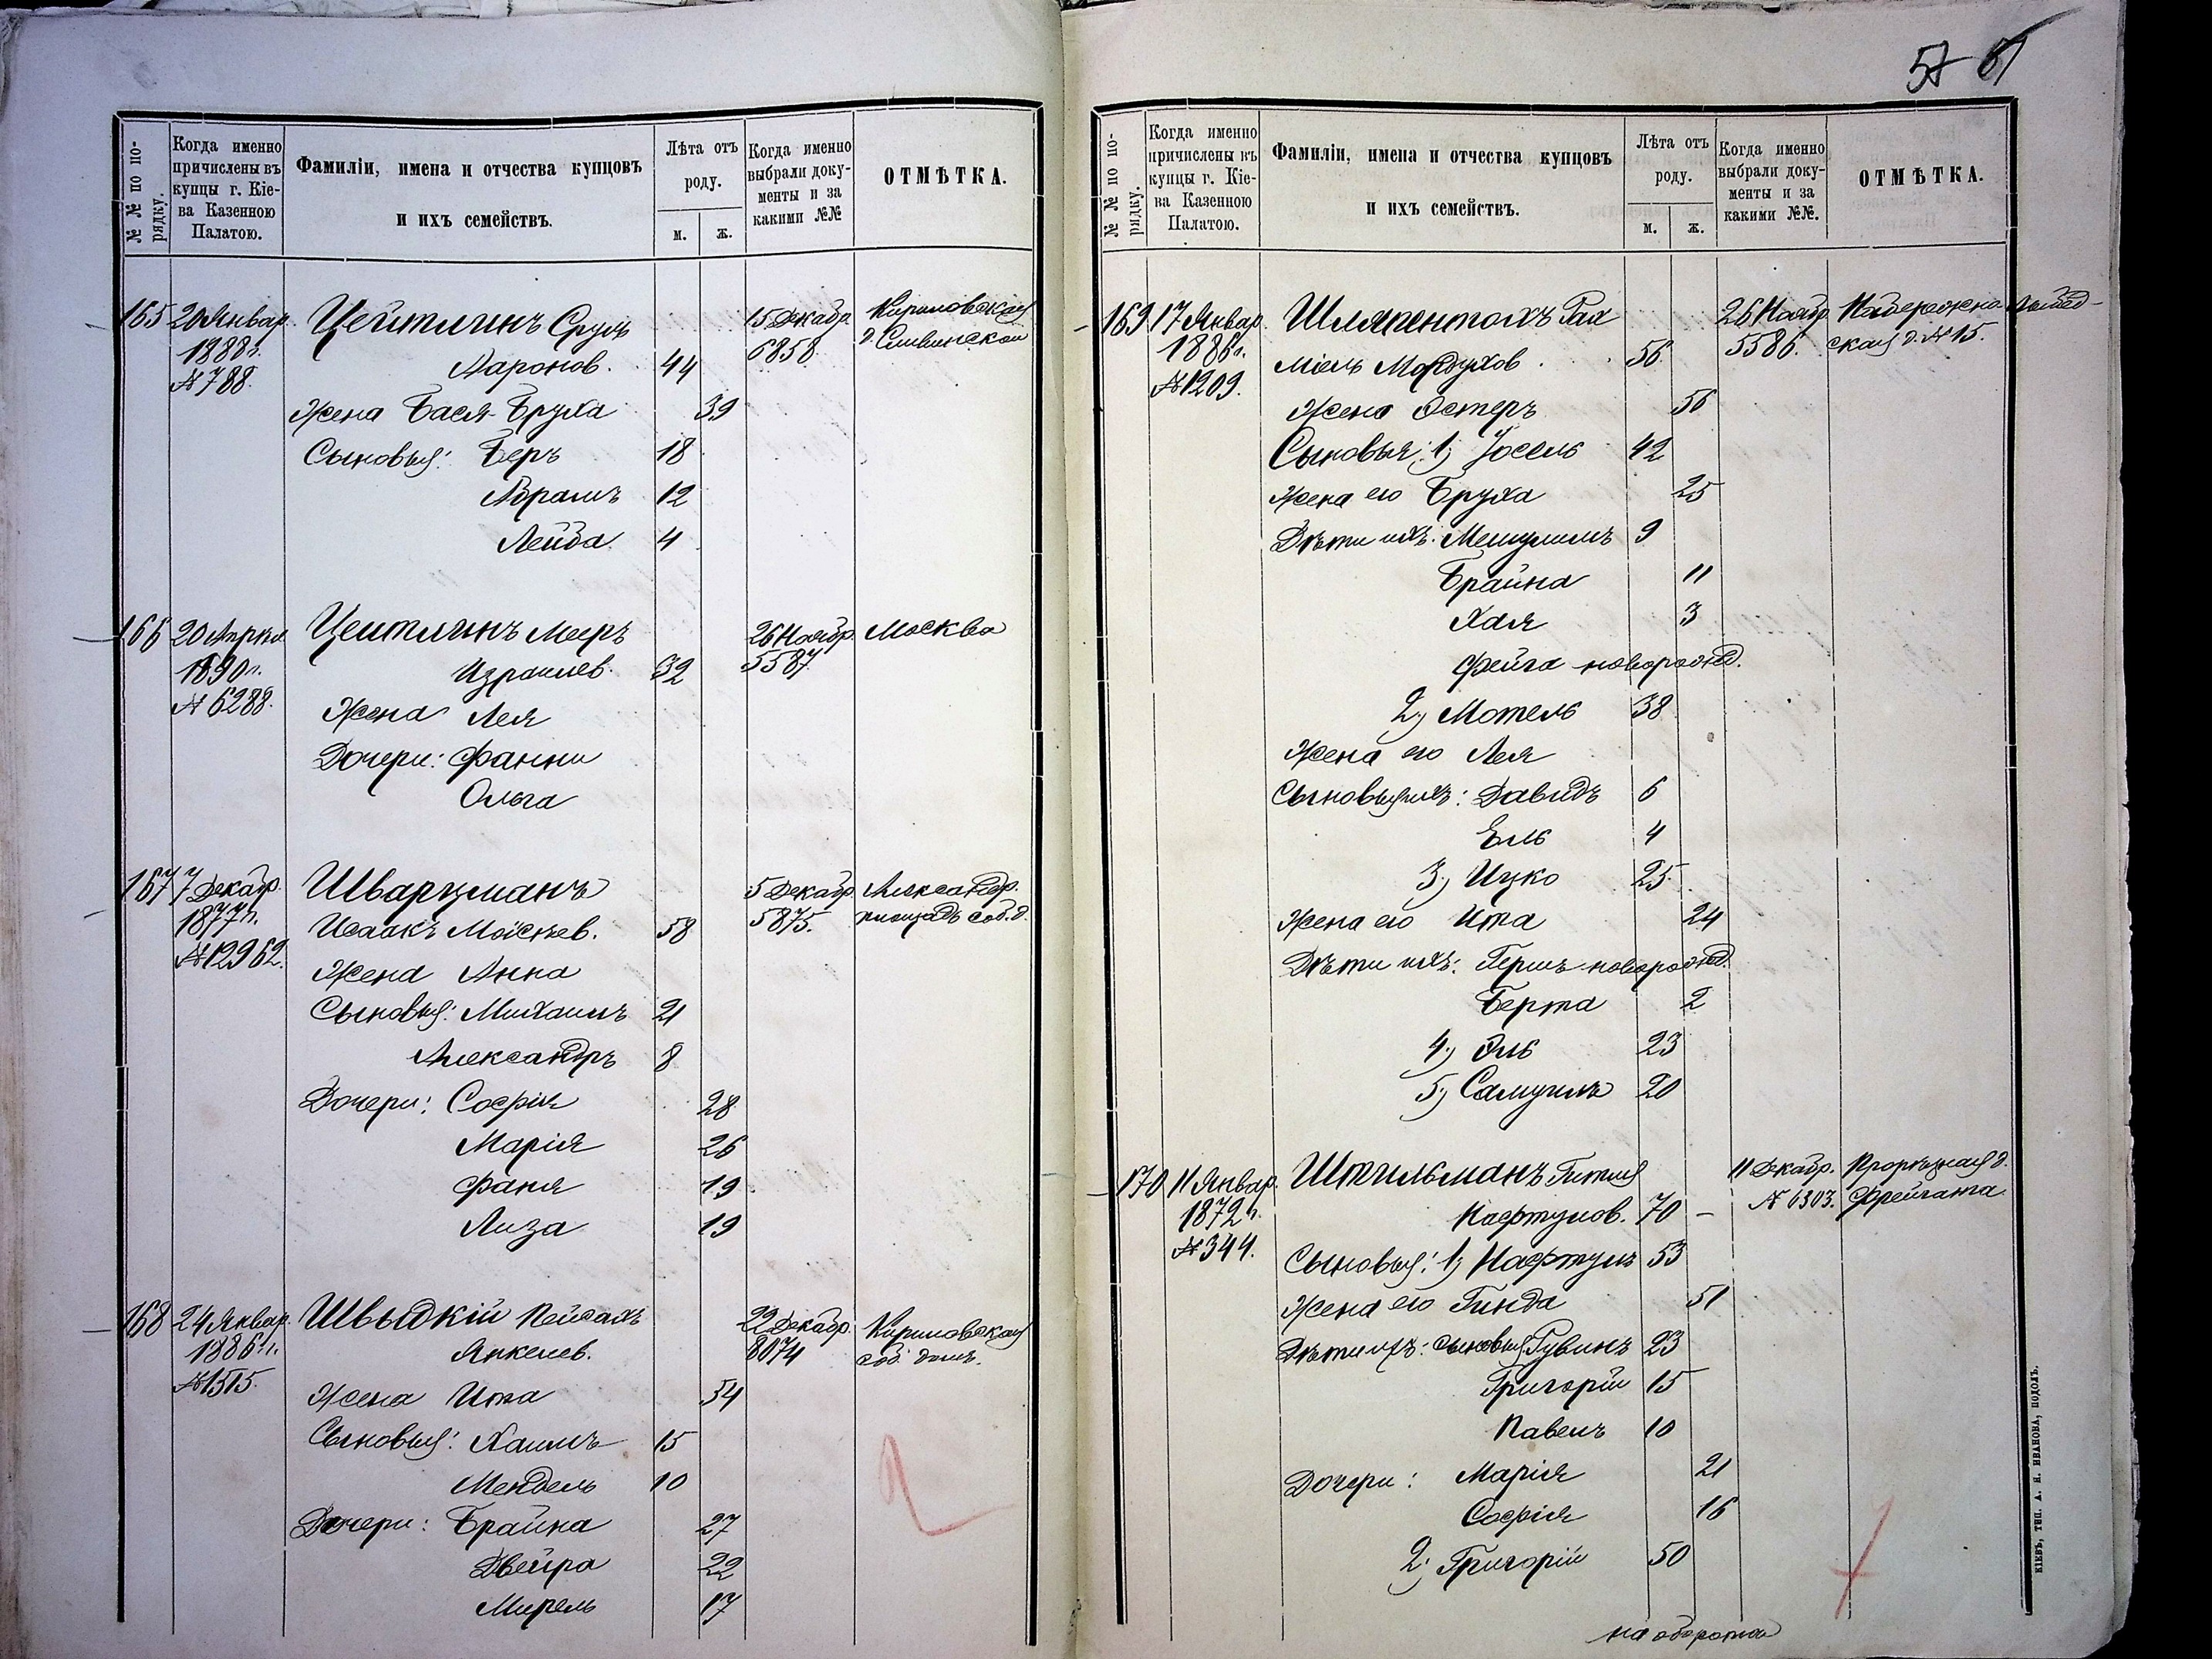 № № по по-
рядку.
Когда именно
причислены въ
купцы г. Кіе-
ва Казенною
Палатою.
Фамиліи, имена и отчества купцовъ
и ихъ семействъ.
Лѣта отъ
роду.
м. ж.
Когда именно
выбрали доку-
менты и за
какими №№
ОТМѢТКА.
165 20 Январ. Цейтлинъ Сруль 15 Декабр. Кириловская
1888 г. Ааронов. 44 6858. д. Сливинской
№ 788.
Жена Бася-Бруха 39
Сыновья: Беръ 18
Абрамъ 12
Лейба 4
166 20 Апрѣл. Цейтлинъ Мееръ 26 Ноябр. Москва
1890 г. Израилев. 32 5587.
№ 6288. Жена Лея
Дочери: Фанни
Ольга
167 7 Декабр. Шварцманъ 5 Декабр. Александр.
1877 г. Исаакъ Моісѣев. 58 5875. площадь соб. д.
№ 12962. Жена Анна
Сыновья: Михаилъ 21
Александръ 8
Дочери: Софія 28
Марія 26
Фаня 19
Лиза 19
168 24 Январ. Швыдкій Пейсахъ 22 Декабр. Кириловская
1886 г. Янкелев. 8074 соб. домъ.
№ 1515.
Жена Ита 54
Сыновья: Хаимъ 15
Мендель 10
Дочери: Брайна 27
Двейра 22
Мирель 17
57 61
№ № по по-
рядку.
Когда именно
причислены въ
купцы г. Кіе-
ва Казенною
Палатою.
Фамиліи, имена и отчества купцовъ
и ихъ семействъ.
Лѣта отъ
роду.
м. ж.
Когда именно
выбрали доку-
менты и за
какими №№.
ОТМѢТКА.
169 17 Январ. Шляпентохъ Рах 26 Ноябр.
1886 г. міель Мордухов. 56 5586. ская д. № 15.
№ 1209.
Жена Эстеръ 56
Сыновья: 1) Іосель 42
Жена его Бруха 25
Дѣти ихъ: Мешулимъ 9
Брайна 11
Хая 3
Фейга новорожд.
2) Мотель 38
Жена его Лея
Сыновья ихъ: Давидъ 6
Ель 4
3) Ицко 25
Жена его Ита 24
Дѣти ихъ: Гершъ новорожд.
Берта 2
4) Эль 23
5) Самуилъ 20
170 11 Январ. Штильманъ 11 Декабр. Прорѣзная д.
1872 г. Нафтулов. 70 – № 6303. Фрейгата
№ 344.
Сыновья: 1) Нафтулъ 53
Жена его Гинда 51
Дѣти ихъ: сыновья Рувинъ 23
Григорій 15
Павелъ 10
Дочери: Марія 21
Софія 16
2) Григорій 50
на оборотѣ
КІЕВЪ, ТИП. А. Н. ИВАНОВА, ПОДОЛЪ.